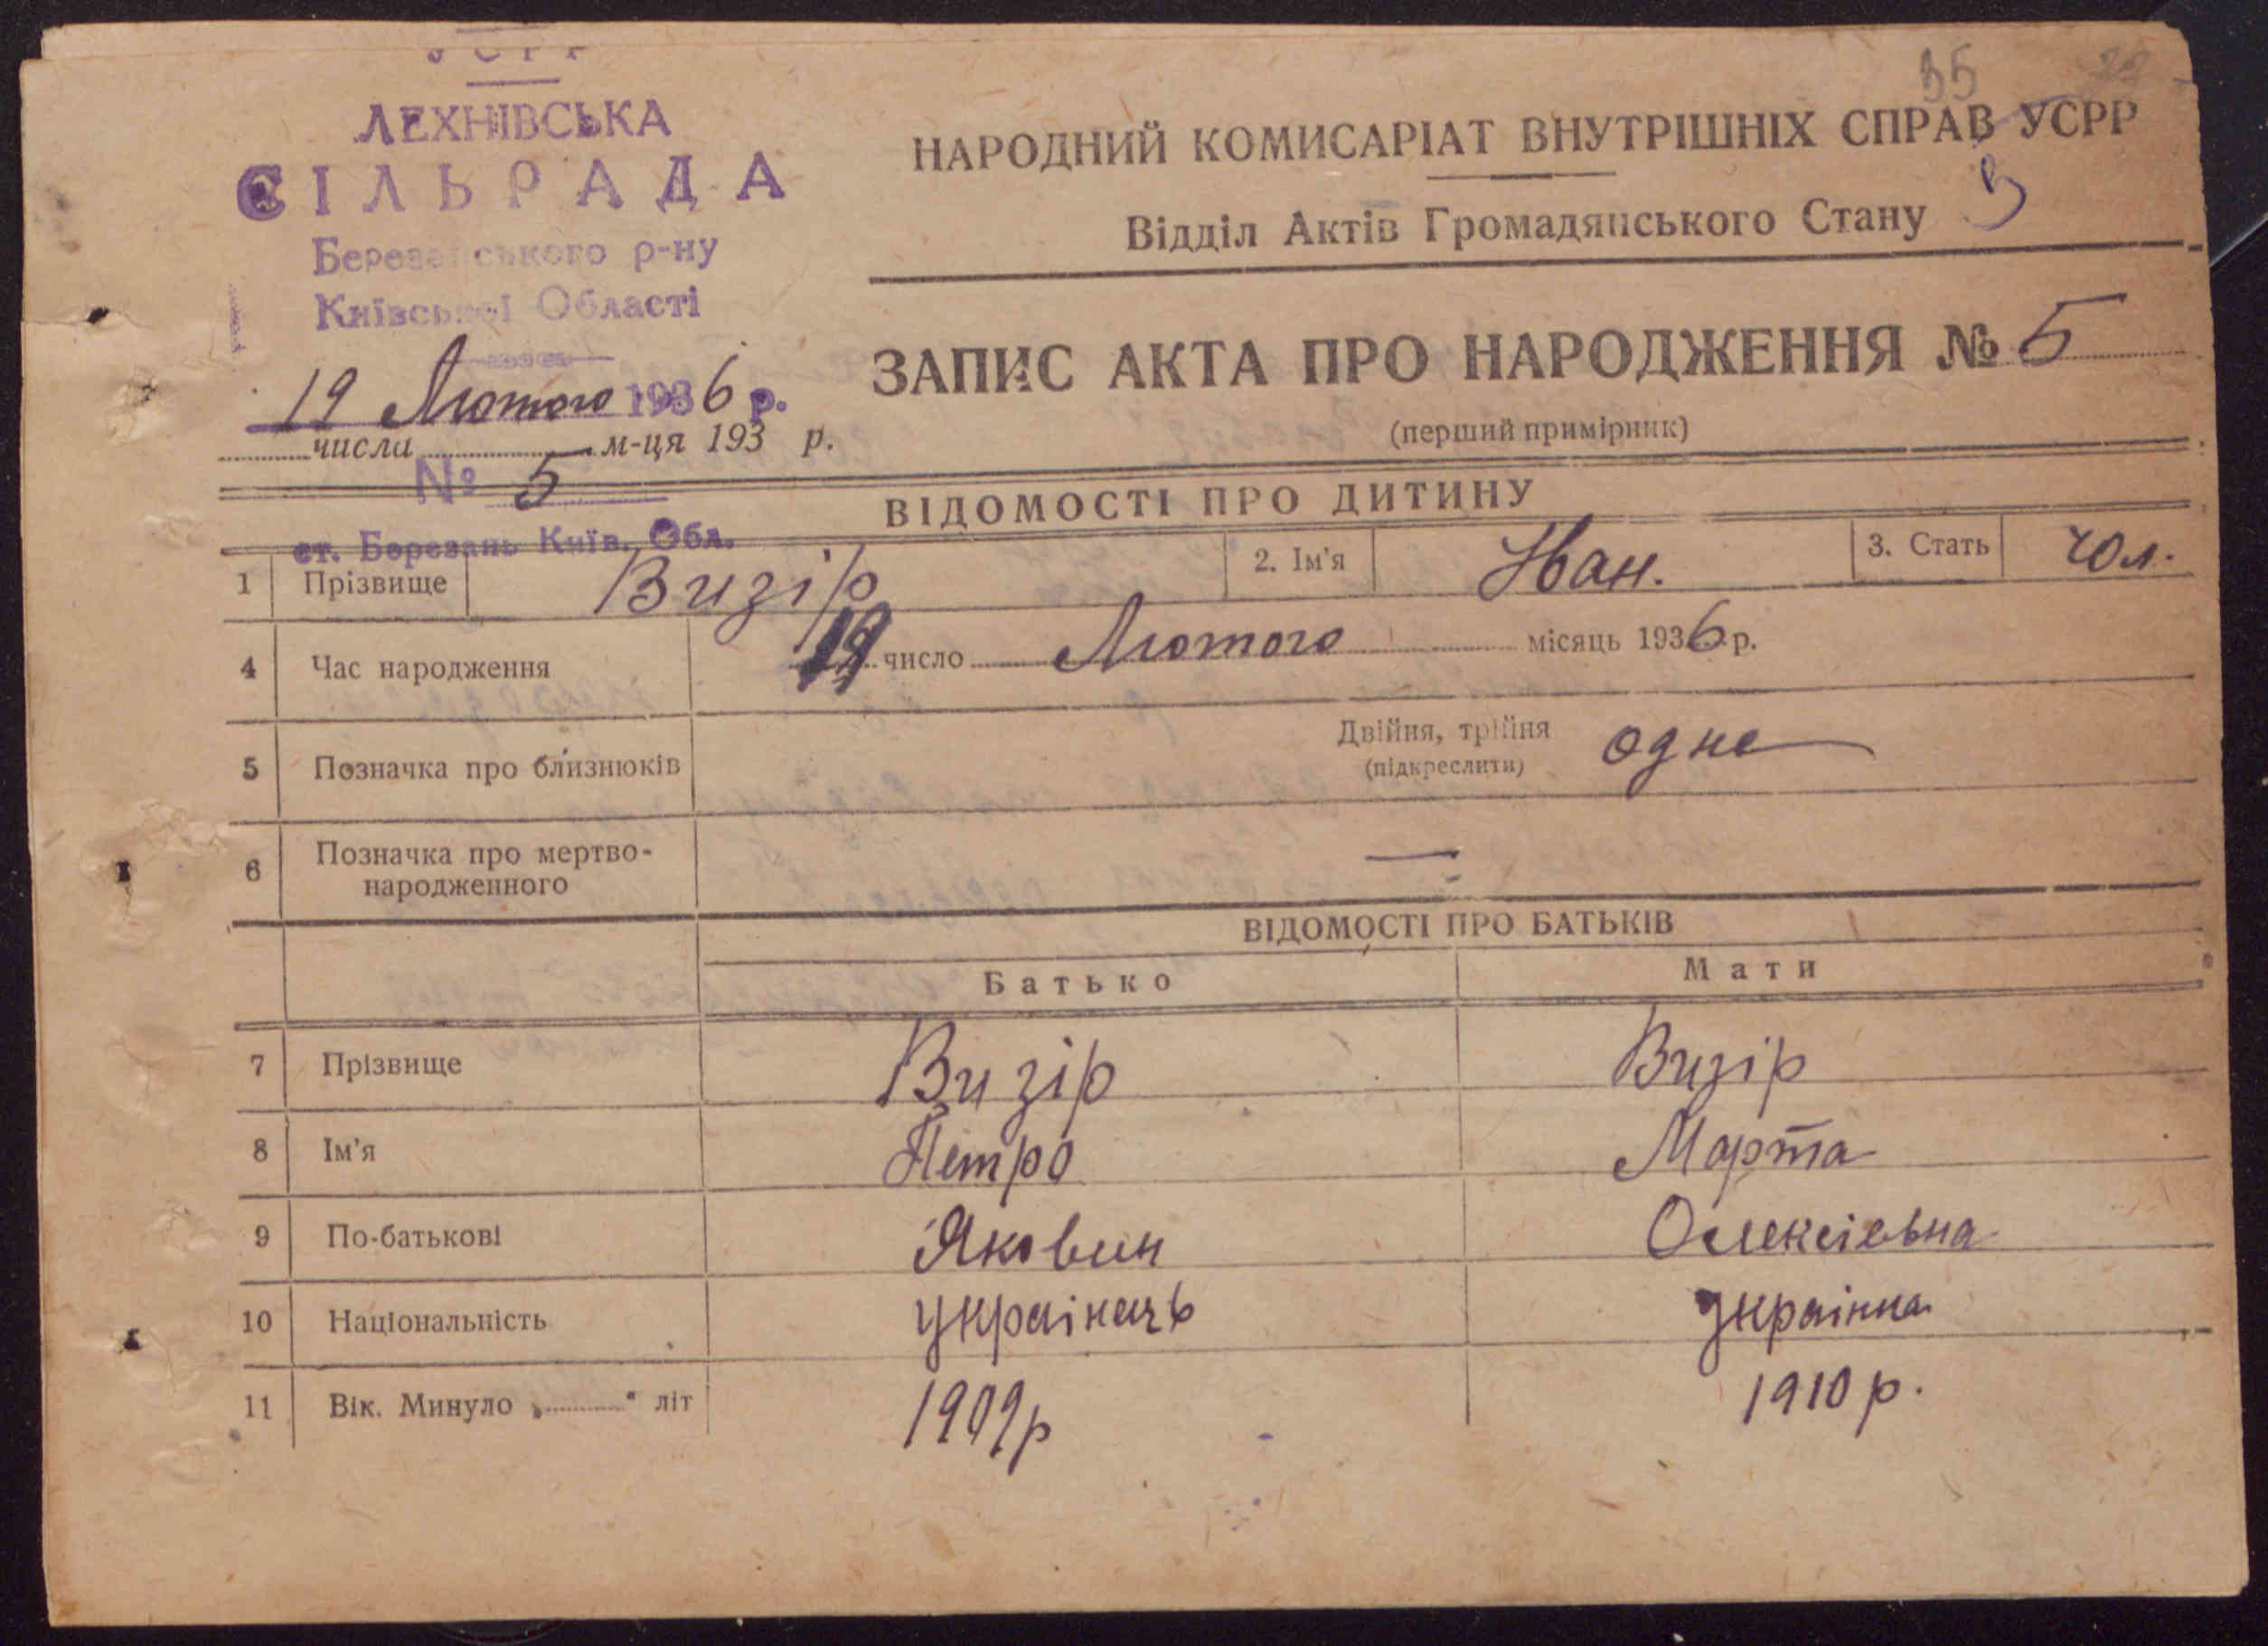 УСРР
ЛЕХНІВСЬКА
СІЛЬРАДА
Березанського р-ну
Київської Області
19 Лютого 1936 р.
числа м-ця 193 р.
№ 5
ст. Березань Київ. Обл.
35
22
НАРОДНИЙ КОМИСАРІАТ ВНУТРІШНІХ СПРАВ УСРР
Відділ Актів Громадянського Стану
ЗАПИС АКТА ПРО НАРОДЖЕННЯ № 5
(перший примірник)
ВІДОМОСТІ ПРО ДИТИНУ
1 Прізвище Визір 2. Ім'я Іван. 3. Стать чол.
4 Час народження 19 число Лютого місяць 1936 р.
5 Позначка про близнюків Двійня, трійня (підкреслити) одне
6 Позначка про мертво-
народженного —
ВІДОМОСТІ ПРО БАТЬКІВ
Батько Мати
7 Прізвище Визір Визір
8 Ім'я Петро Марта
9 По-батькові Якович Олексієвна
10 Національність українець українка
11 Вік. Минуло „ “ літ 1909р 1910 р.